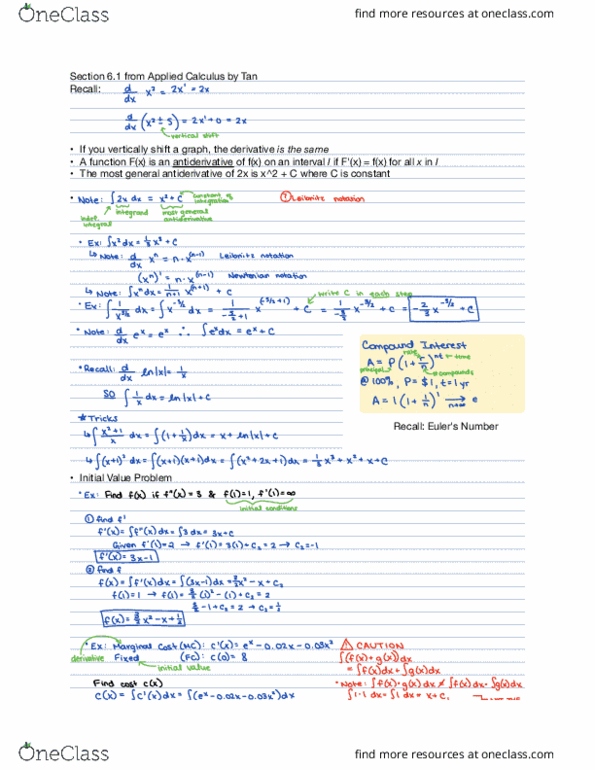 OneClass
find more resources at oneclass.com
Section 6.1 from Applied Calculus by Tan
Recall: d/dx x² = 2x¹ = 2x
d/dx (x² ± 5) = 2x¹ + 0 = 2x
vertical shift
• If you vertically shift a graph, the derivative is the same
• A function F(x) is an antiderivative of f(x) on an interval I if F'(x) = f(x) for all x in I
• The most general antiderivative of 2x is x^2 + C where C is constant
• Note: ∫2x dx = x² + C constant of integration
① Leibnitz notation
indef. integral integrand most general antiderivative
• Ex: ∫x² dx = ⅓x³ + C
↳ Note: d/dx xⁿ = n·x^(n-1) Leibnitz notation
(xⁿ)' = n·x^(n-1) Newtonian notation
↳ Note: ∫xⁿ dx = 1/(n+1) x^(n+1) + C
write C in each step
• Note: d/dx eˣ = eˣ ∴ ∫eˣdx = eˣ + C
Compound Interest
A = P(1 + r/n)^nt
rate
time
principal
# compounds
@ 100%, P = $1, t = 1 yr
A = 1(1 + 1/n)
n→∞ e
Recall: Euler's Number
• Recall: d/dx ln|x| = 1/x
SO ∫1/x dx = ln|x| + C
* Tricks
↳ ∫(x²+1)/x dx = ∫(1 + 1/x)dx = x + ln|x| + C
↳ ∫(x+1)² dx = ∫(x+1)(x+1)dx = ∫(x²+2x+1)dx = ⅓x³ + x² + x + C
• Initial Value Problem
• Ex: Find f(x) if f"(x) = 3 & f(1) = 1, f'(1) = ∞
initial conditions
① find f'
f'(x) = ∫f"(x)dx = ∫3dx = 3x + C
Given f'(1) = 2 → f'(1) = 3(1) + C₁ = 2 → C₁ = -1
f'(x) = 3x - 1
② find f
f(x) = ∫f'(x)dx = ∫(3x-1)dx = 3/2x² - x + C₂
f(1) = 1 → f(1) = 3/2(1)² - (1) + C₂ = 2
3/2 - 1 + C₂ = 2 → C₂ = ½
f(x) = 3/2x² - x + ½
• Ex: Marginal Cost (MC): C'(x) = eˣ - 0.02x - 0.03x²
derivative Fixed (FC): C(0) = 8
initial value
⚠ CAUTION
∫(f(x) + g(x))dx
= ∫f(x)dx + ∫g(x)dx
Find cost C(x)
C(x) = ∫C'(x)dx = ∫(eˣ - 0.02x - 0.03x²)dx
• Note: ∫f(x)·g(x)dx ≠ ∫f(x)dx · ∫g(x)dx
∫1·1 dx = ∫1 dx = x + C,
OneClass
find more resources at oneclass.com